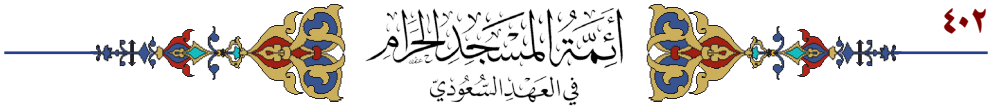 ٤٠٢
أَئِمَّةُ المَسْجِدِ الحَرَامِ
فِي العَهْدِ السُّعُودِيِّ